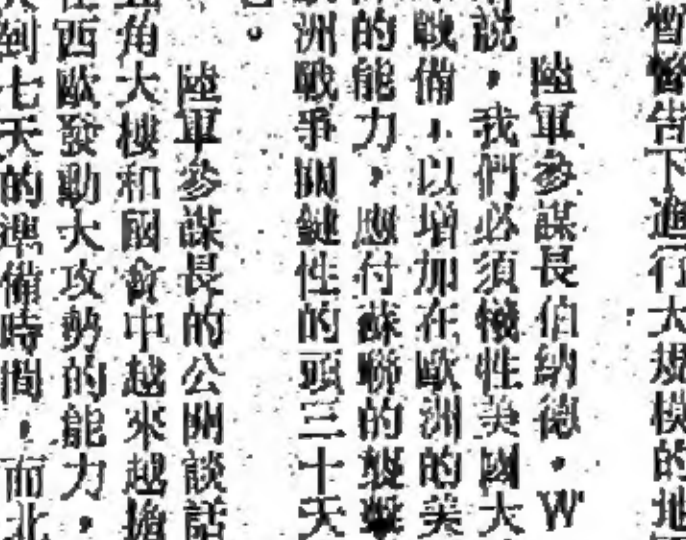 警告下進行大規模的地
陸軍參謀長伯納德·W
說，我們必須犧牲美國大
戰備，以增加在歐洲的美
的能力，應付蘇聯的襲擊
洲戰爭關鍵性的頭三十天
。
陸軍參謀長的公開談話
角大樓和國會中越來越擔
西歐發動大攻勢的能力，
到七天的準備時間，而北